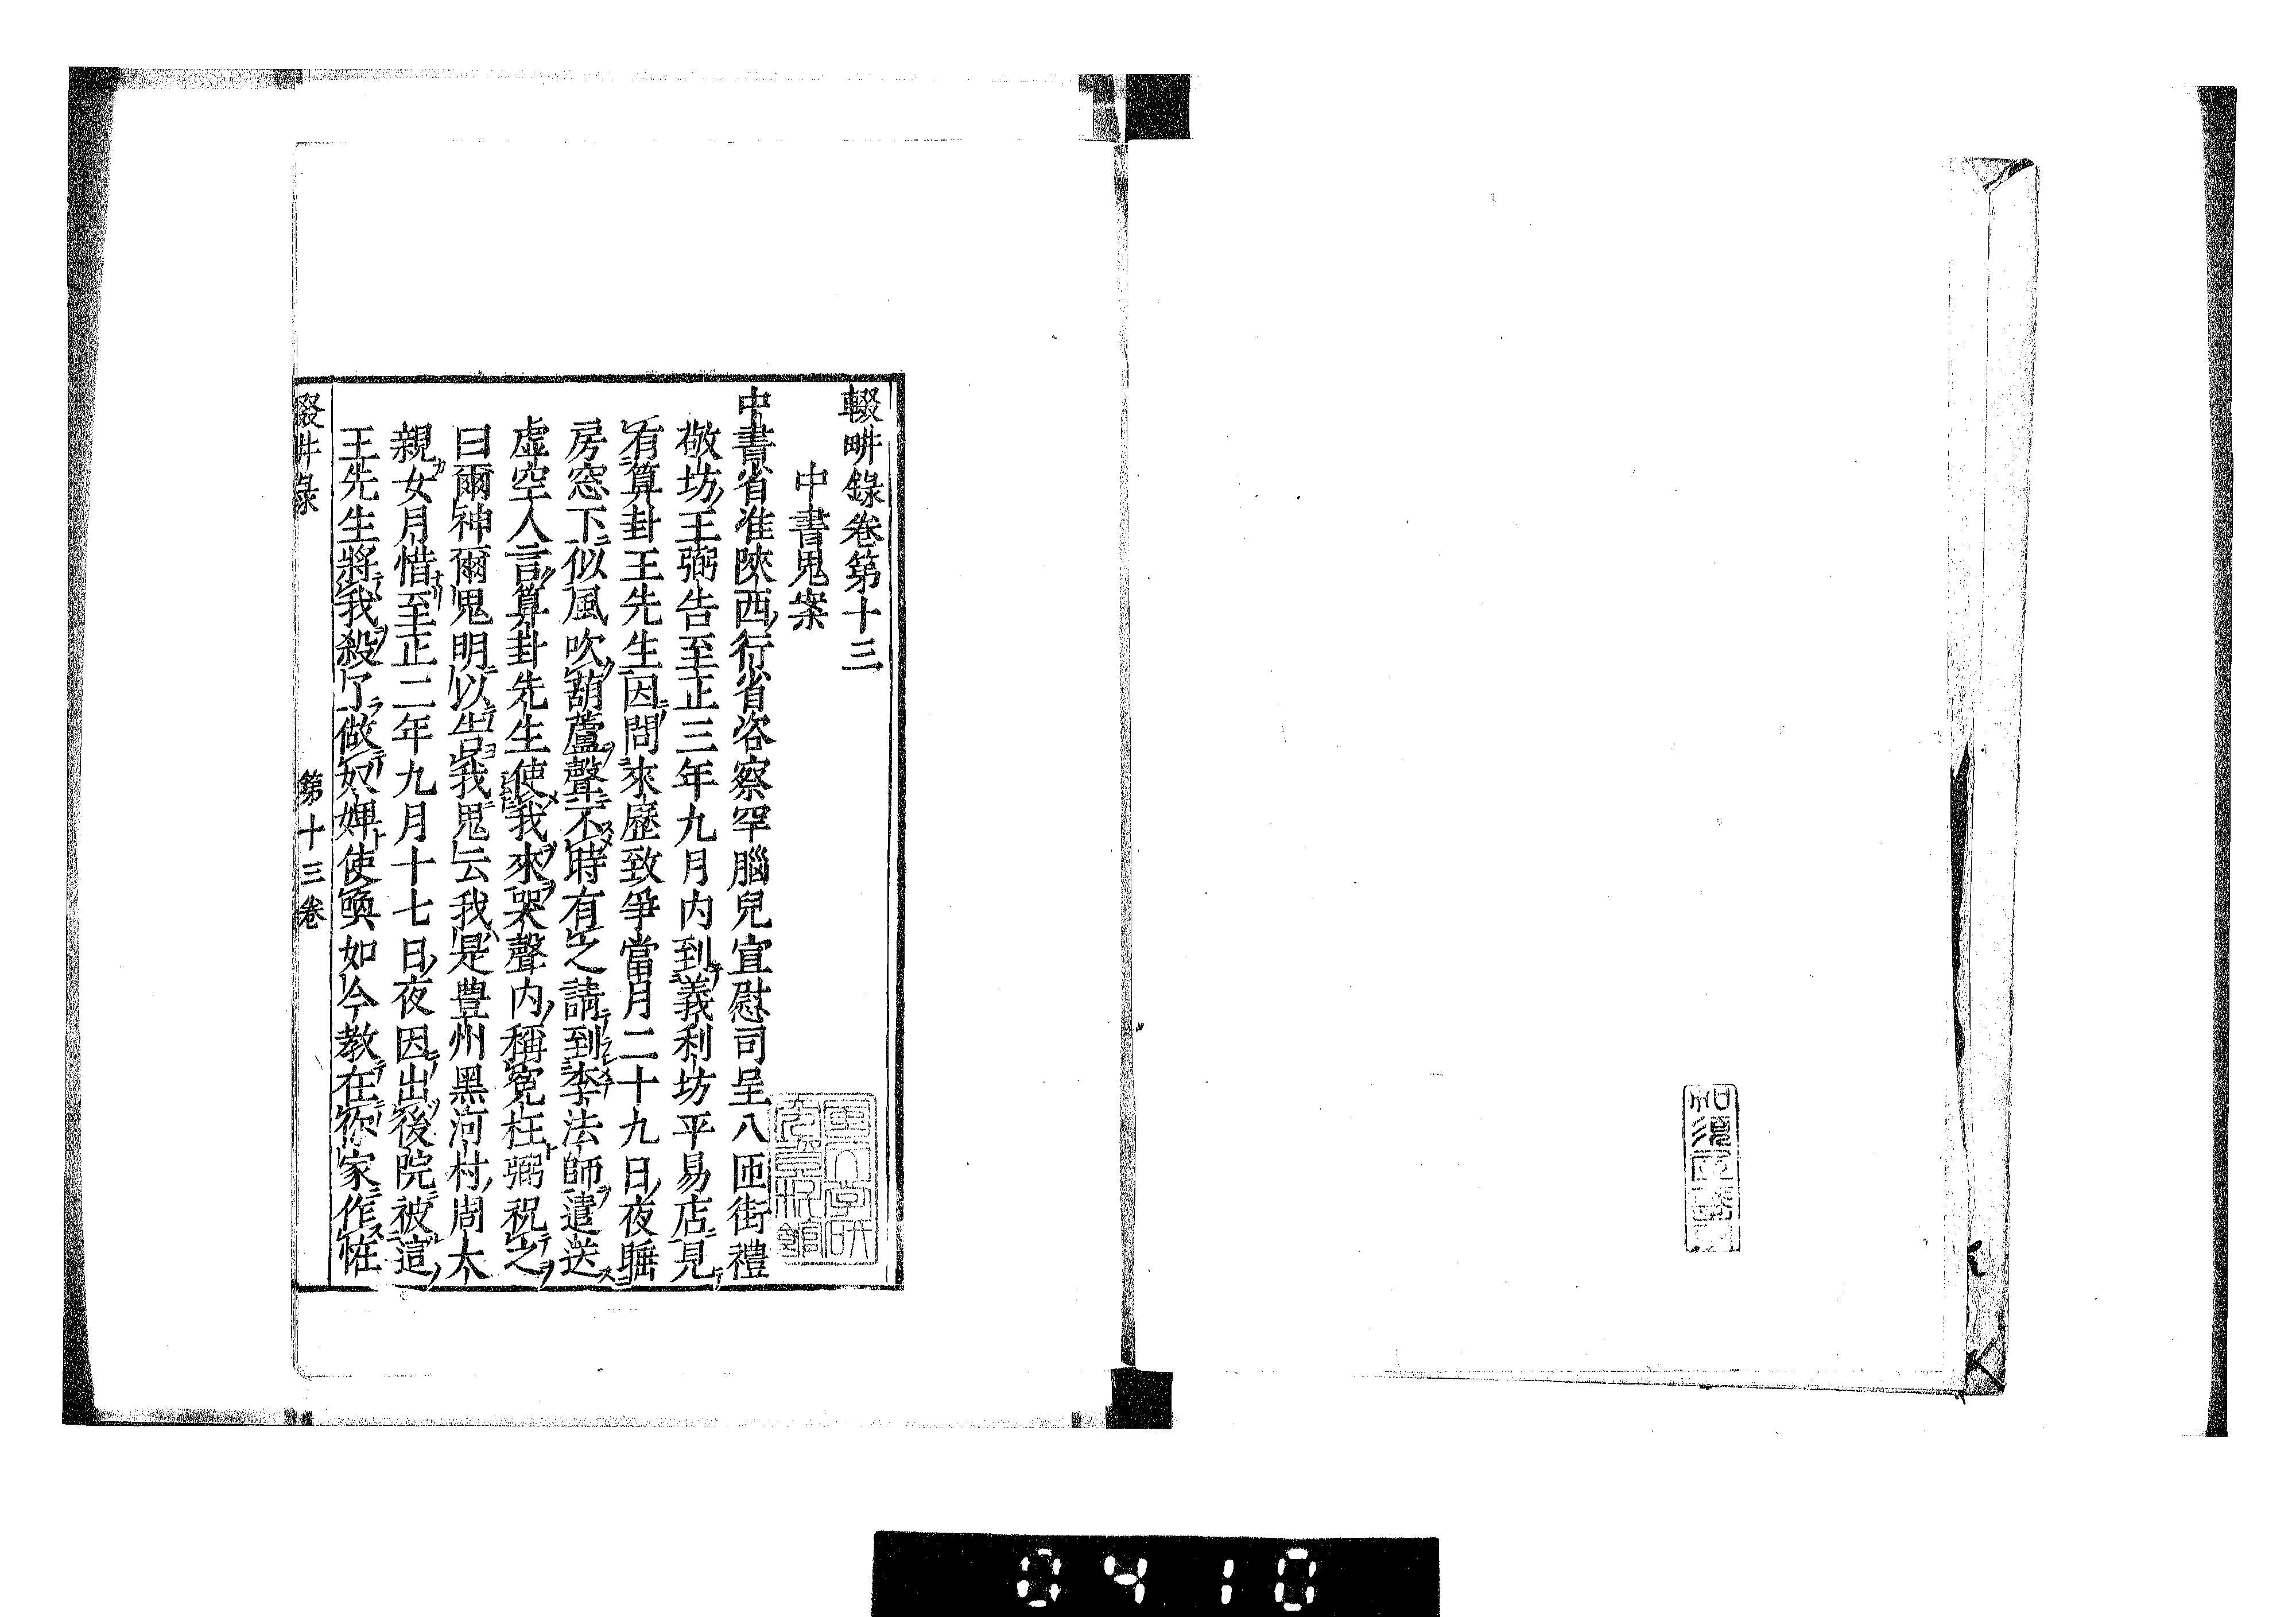 輟畊錄卷第十三
中書鬼案
中書省准陝西行省咨察罕腦兒宣慰司呈八匝街禮
敬坊王弼告至正三年九月內到義利坊平易店見
有算卦王先生因問來歷致爭當月二十九日夜睡
房窓下似風吹葫蘆聲不時有之請到李法師遣送
虛空人言算卦先生使我來哭聲內稱寃枉弼祝之
曰爾神爾鬼明以告我鬼云我是豊州黑河村周大
親女月惜至正二年九月十七日夜因出後院被這
王先生將我殺了做奴婢使喚如今教在你家作怪
輟畊錄 第十三卷
0410